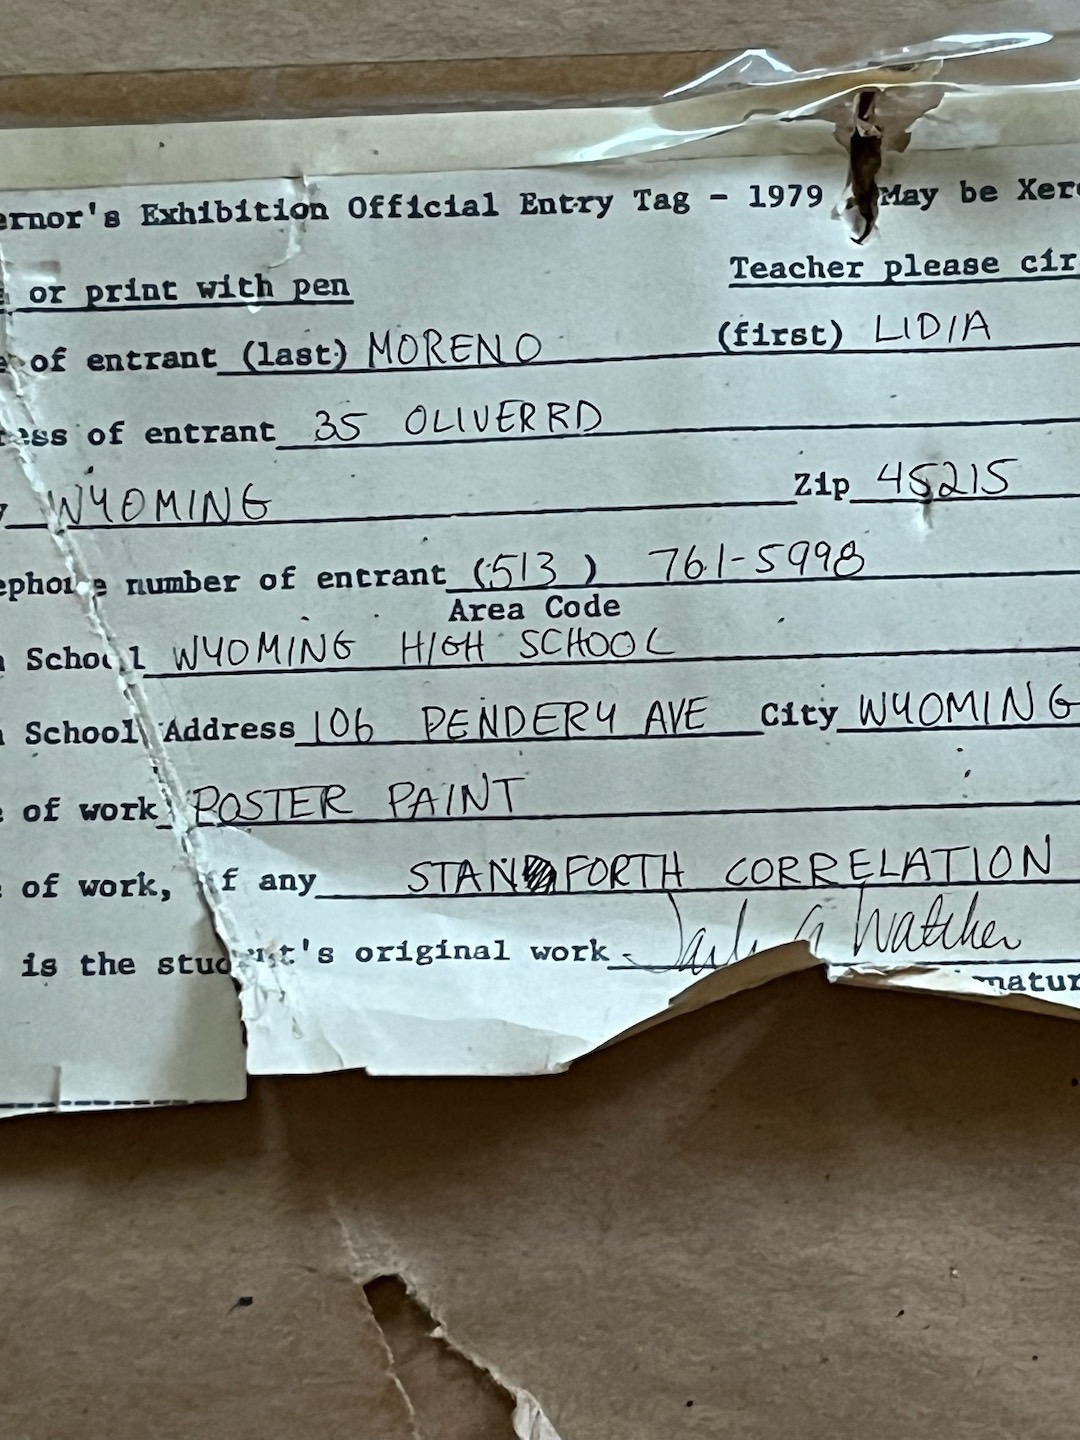 ernor's Exhibition Official Entry Tag - 1979 May be Xer
or print with pen Teacher please cir
of entrant (last) MORENO (first) LIDIA
ess of entrant 35 OLIVER RD
WYOMING Zip 45215
ephone number of entrant (513) 761-5998
Area Code
School WYOMING HIGH SCHOOL
School Address 106 PENDERY AVE City WYOMING
of work POSTER PAINT
of work, if any STANFORTH CORRELATION
is the student's original work
natur